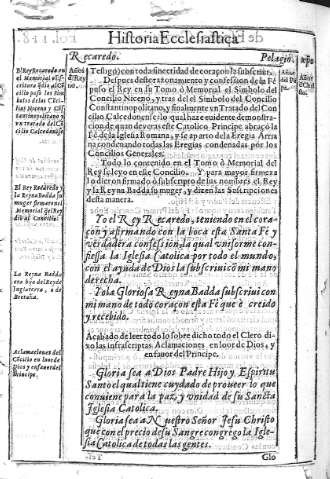 Historia Ecclesiastica
Recaredo.
Pelagio.
Testigo) con toda sinceridad de coraçon la subscriui.
Despues deste razonamiento y confession de la Fè
puso el Rey en su Tomo ò Memorial el Simbolo del
Concilio Niceno, y tras del el Simbolo del Concilio
Constantinopolitano, y finalmente un Tratado del Con
cilio Calcedonense: lo qual haze euidente demonstra-
cion de quan de veras este Catolico Principe abraçò la
Fè de la Iglesia Romana, y se apartò de la Eregia Arria
na condenando todas las Eregias condenadas por los
Concilios Generales.
Todo lo contenido en el Tomo ò Memorial del
Rey se leyo en este Concilio. Y para mayor firmeza
lo dieron firmado ò subscripto de sus nombres el Rey
y la Reyna Badda su muger, y dizen las Subscripciones
desta manera.
Yo el Rey Recaredo, teniendo en el cora-
çon y afirmando con la boca esta Santa Fé y
verdadera confession, la qual vniforme con-
fiessa la Iglesia Catolica por todo el mundo,
con el ayuda de Dios la subscriui cõ mi mano
derecha.
Yo la Gloriosa Reyna Badda subscriui con
mi mano de todo coraçon esta Fé que è creido
y recebido.
Acabado de leer todo lo sobre dicho todo el Clero di-
xo las infrascriptas Aclamaciones en loor de Dios, y
en fauor del Principe.
Gloria sea a Dios Padre Hijo y Espiritu
Santo el qual tiene cuydado de proueer lo que
conuiene para la paz, y vnidad de su Sancta
Iglesia Catolica.
Gloria sea a Nuestro Señor Jesu Christo
que con el precio de su Sangre congregò la Igle-
sia Catolica de todas las gentes.
Glo
El Rey Recaredo y
la Reyna Badda su
muger firmaron el
Memorial del Rey
dado al Concilio.
La Reyna Badda
era hija del Rey de
Inglaterra, o de
Bretaña.
Aclamaciones del
Cõcilio en loor de
Dios y en fauor del
Principe.